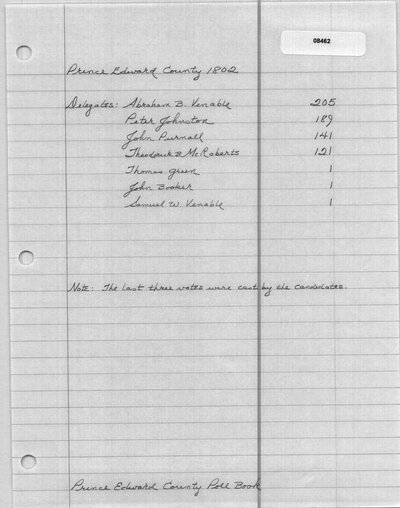 08462
Prince Edward County 1802
Delegates: Abraham B. Venable 205
Peter Johnston 189
John Purnall 141
Theodorick B McRoberts 121
Thomas Green 1
John Booker 1
Samuel W. Venable 1
Note: The last three votes were cast by the candidates.
Prince Edward County Poll Book